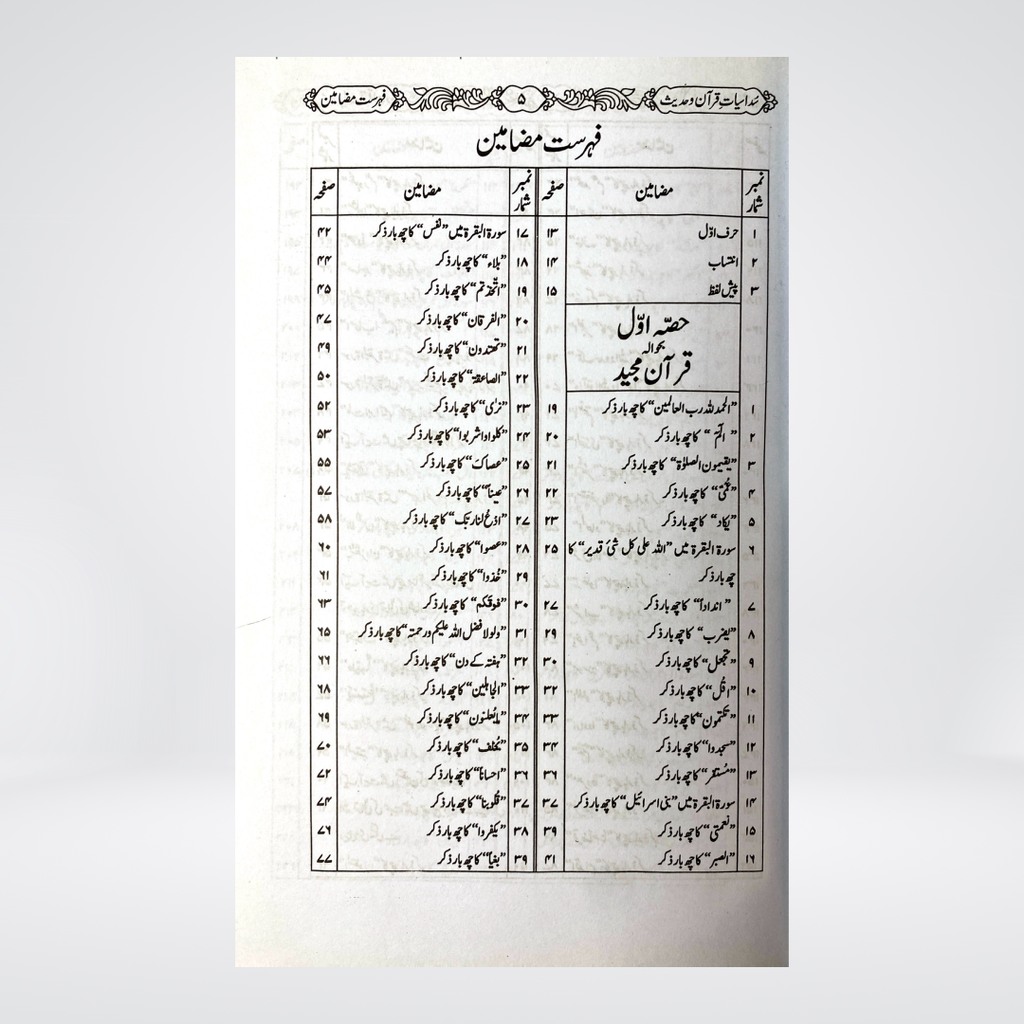 سُداسیاتِ قرآن و حدیث ۵ فہرست مضامین
فہرست مضامین
نمبر شمار مضامین صفحہ
۱ حرف اوّل ۱۳
۲ انتساب ۱۴
۳ پیش لفظ ۱۵
حصّہ اوّل
بحوالہ
قرآن مجید
۱ "الحمدللہ رب العالمین" کا چھ بار ذکر ۱۹
۲ "الٓمٓ" کا چھ بار ذکر ۲۰
۳ "یقیمون الصلوٰۃ" کا چھ بار ذکر ۲۱
۴ "عُمْیٌ" کا چھ بار ذکر ۲۲
۵ "یکاد" کا چھ بار ذکر ۲۳
۶ سورۃ البقرۃ میں "اللہ علی کل شئ قدیر" کا ۲۵
چھ بار ذکر
۷ "انداداً" کا چھ بار ذکر ۲۷
۸ "یضرب" کا چھ بار ذکر ۲۹
۹ "تجعل" کا چھ بار ذکر ۳۰
۱۰ "اقُل" کا چھ بار ذکر ۳۲
۱۱ "تکتمون" کا چھ بار ذکر ۳۳
۱۲ "سجدوا" کا چھ بار ذکر ۳۴
۱۳ "مُستقر" کا چھ بار ذکر ۳۶
۱۴ سورۃ البقرۃ میں "بنی اسرائیل" کا چھ بار ذکر ۳۷
۱۵ "نعمتی" کا چھ بار ذکر ۳۹
۱۶ "الصبر" کا چھ بار ذکر ۴۱
نمبر شمار مضامین صفحہ
۱۷ سورۃ البقرۃ میں "نفس" کا چھ بار ذکر ۴۲
۱۸ "بلاء" کا چھ بار ذکر ۴۴
۱۹ "اتّخذتم" کا چھ بار ذکر ۴۵
۲۰ "الفرقان" کا چھ بار ذکر ۴۷
۲۱ "تھتدون" کا چھ بار ذکر ۴۹
۲۲ "الصاعقۃ" کا چھ بار ذکر ۵۰
۲۳ "نرٰی" کا چھ بار ذکر ۵۲
۲۴ "کلوا واشربوا" کا چھ بار ذکر ۵۳
۲۵ "عصاک" کا چھ بار ذکر ۵۵
۲۶ "عیناً" کا چھ بار ذکر ۵۷
۲۷ "ادعُ لنا ربّک" کا چھ بار ذکر ۵۸
۲۸ "عصوا" کا چھ بار ذکر ۶۰
۲۹ "خُذوا" کا چھ بار ذکر ۶۱
۳۰ "فوقکم" کا چھ بار ذکر ۶۳
۳۱ "ولولا فضل اللہ علیکم ورحمتہ" کا چھ بار ذکر ۶۵
۳۲ "ہفتہ کے دن" کا چھ بار ذکر ۶۶
۳۳ "الجاہلین" کا چھ بار ذکر ۶۸
۳۴ "مایُعلنون" کا چھ بار ذکر ۶۹
۳۵ "یُخلف" کا چھ بار ذکر ۷۰
۳۶ "احساناً" کا چھ بار ذکر ۷۲
۳۷ "قلوبنا" کا چھ بار ذکر ۷۴
۳۸ "یکفروا" کا چھ بار ذکر ۷۶
۳۹ "بغیاً" کا چھ بار ذکر ۷۷